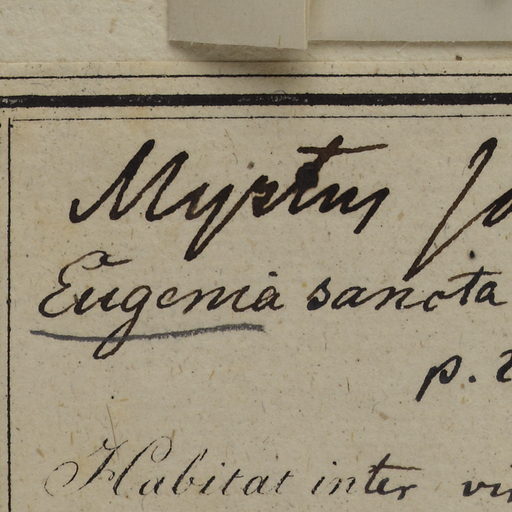 Myrtus
Eugenia sancta
p. 2
Habitat inter